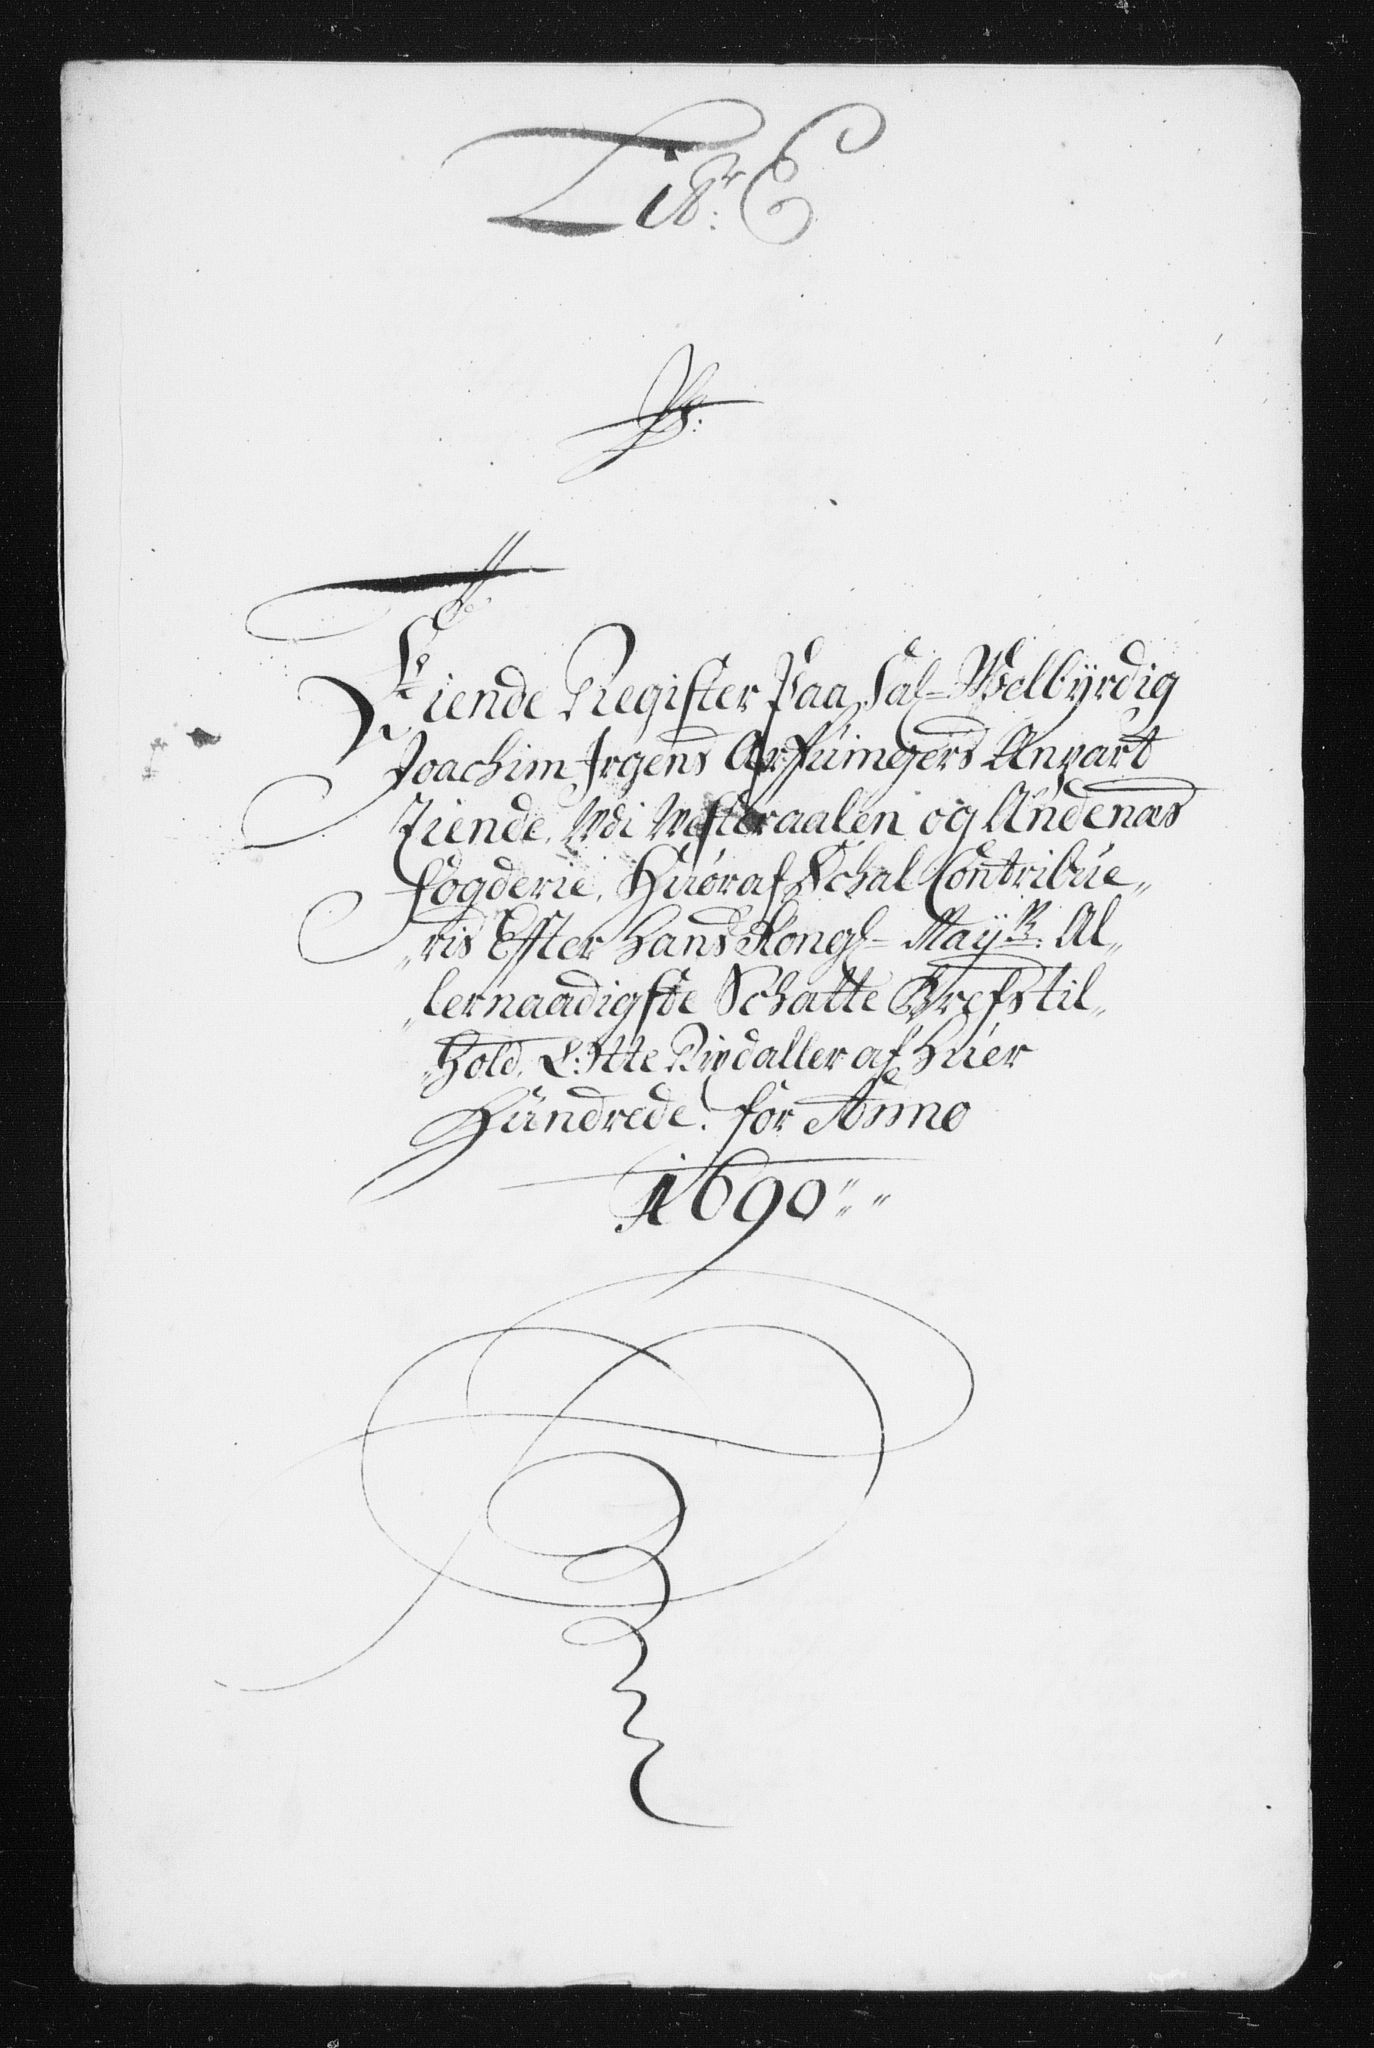 Litr: E
Tiende Register Paa Sal= Welbÿrdig
Joachim Irgens Arfuingers Anpart
Tiende, Udi Westeraalen og Andenæs
fogderie, Huoraf Schal Contribue„
„ris Effter Hans Kongl= Maÿts: Al„
„lernaadigste Schatte Brefs til„
„Hold, Otte Rixdaller af huer
Hundrede. for Anno
1690„„